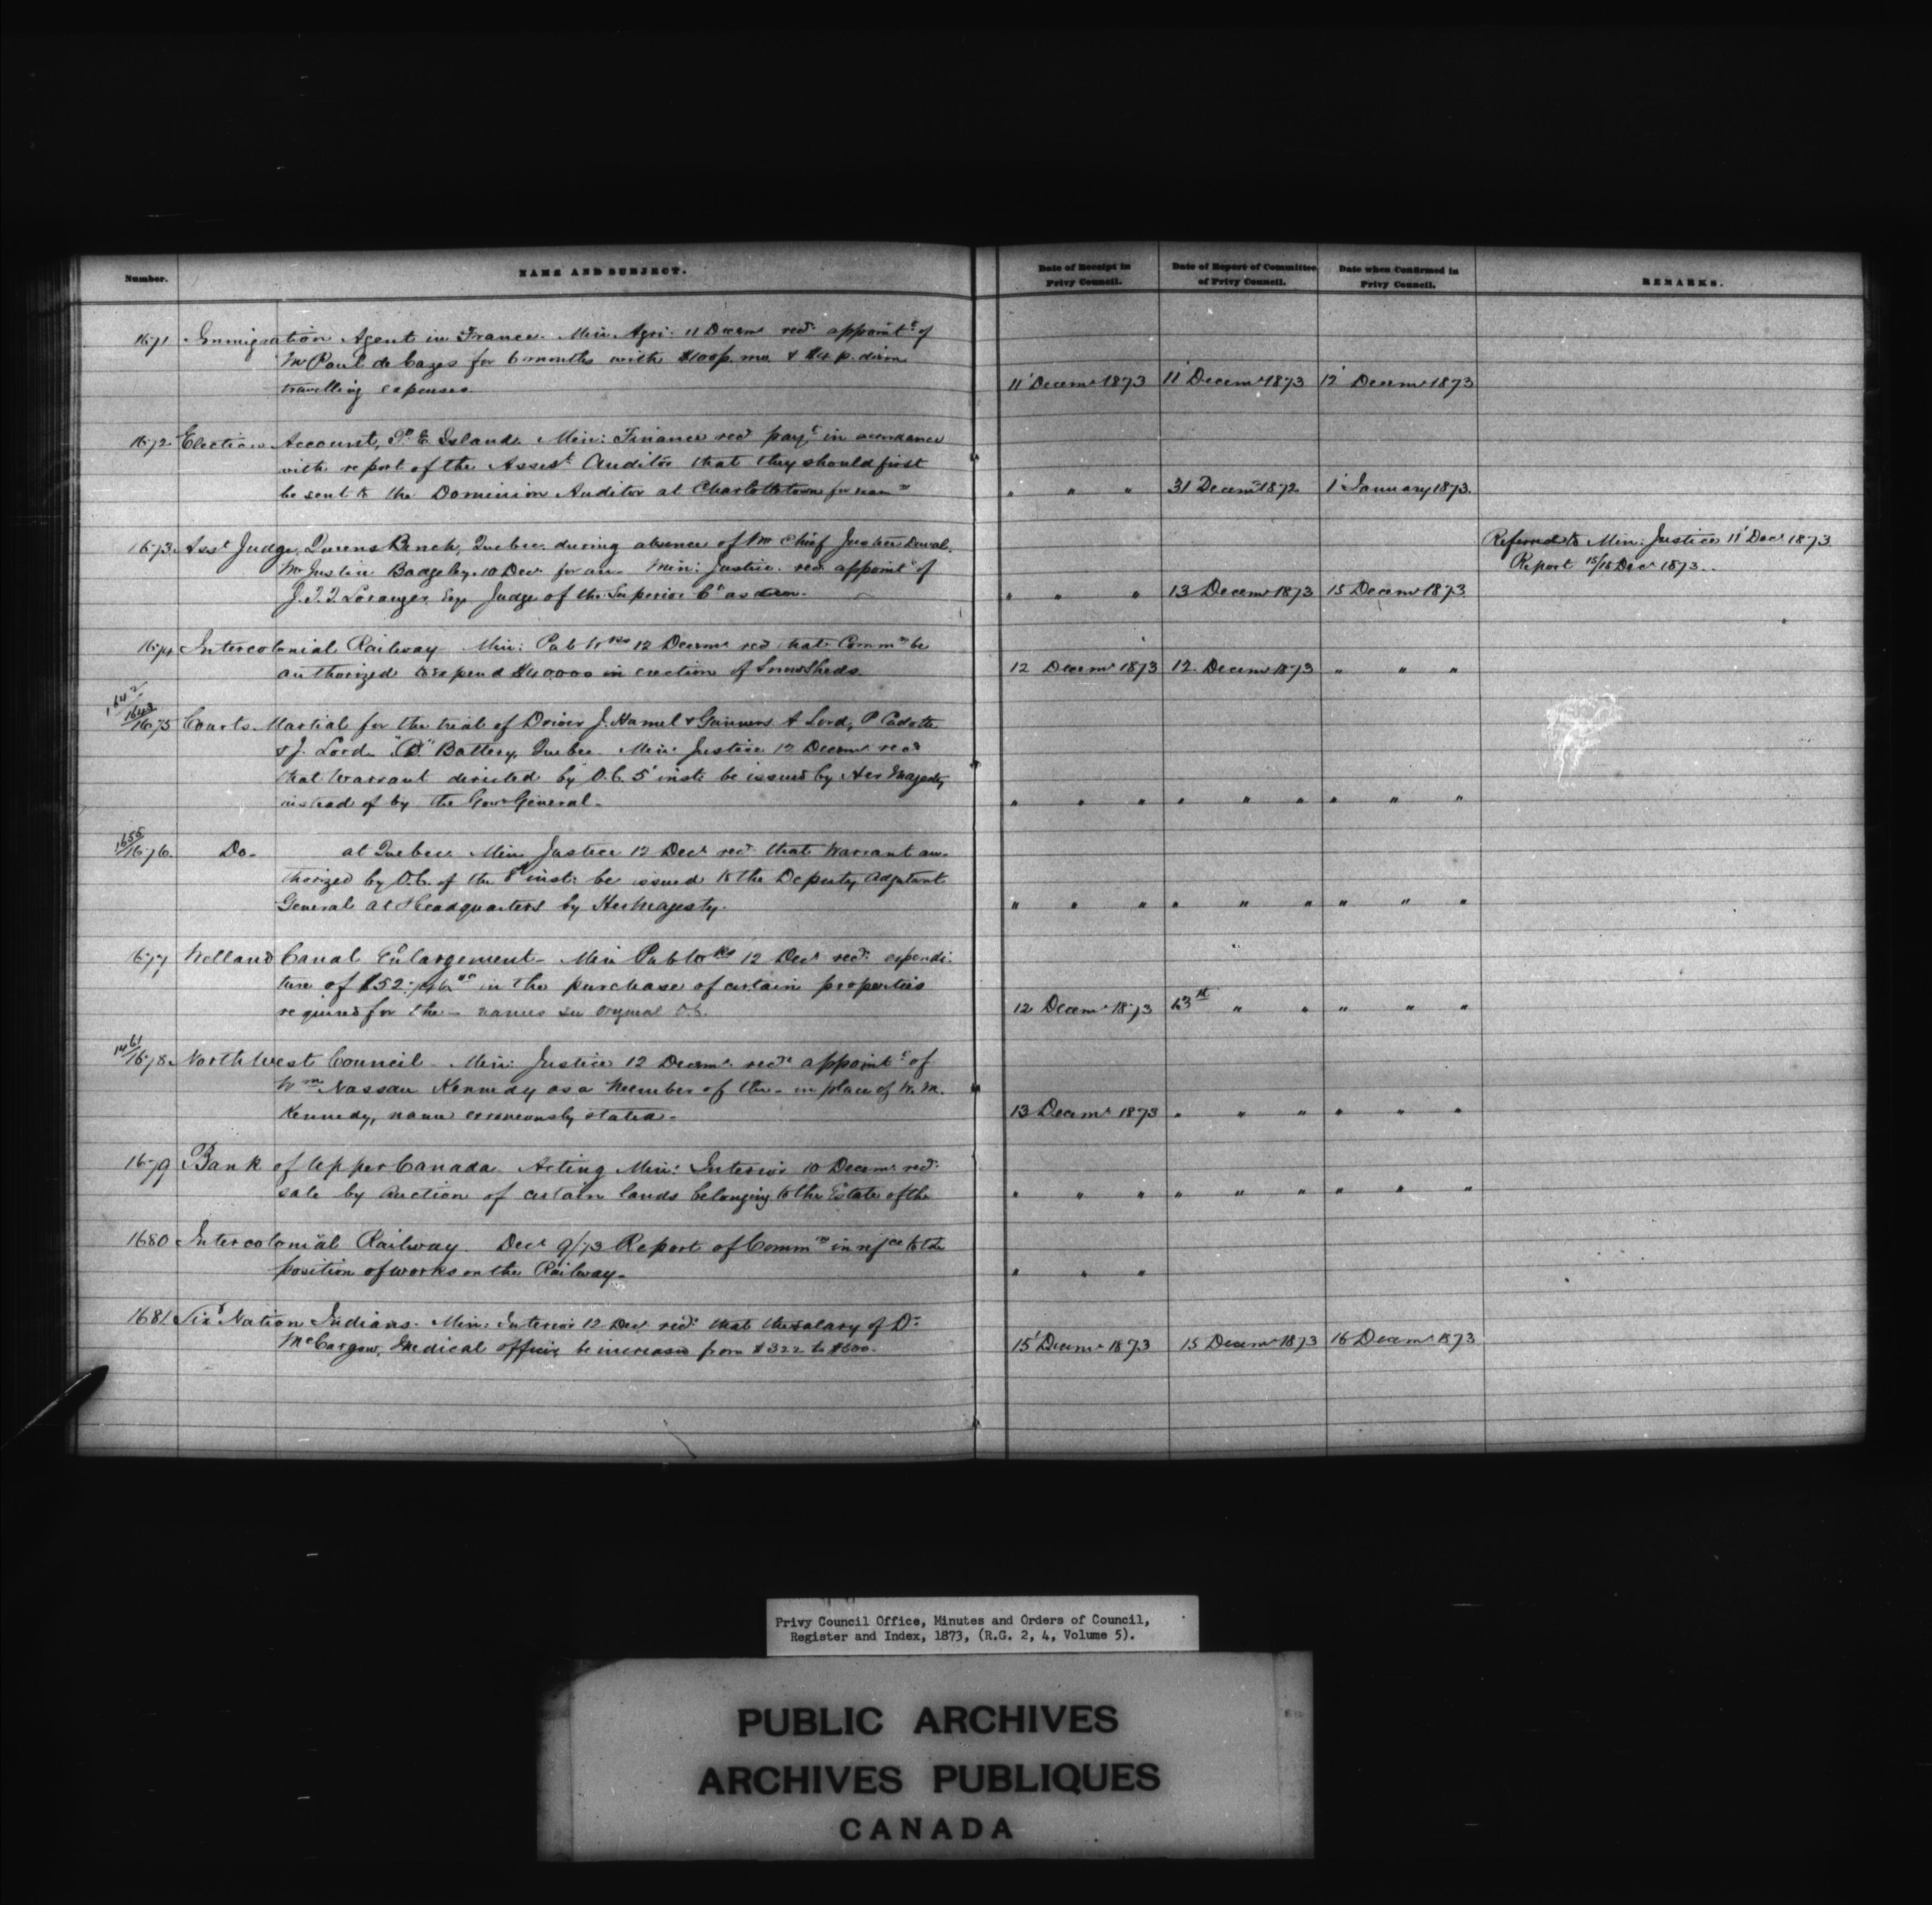 Number. NAME AND SUBJECT. Date of Receipt in Privy Council. Date of Report of Committee of Privy Council. Date when Confirmed in Privy Council. REMARKS.
1671 Immigration Agent in France. Min. Agri. 11 Decemr recd appointt of
Mr Paul de Cazes for 6 months with $100 p. mo & $4 p. diem
travelling expenses. 11' Decemr 1873 11' Decemr 1873 12' Decemr 1873
1672 Election Account, P. E. Island. Min: Finance recd payt in accordance
with report of the Assist Auditor that they should first
be sent to the Dominion Auditor at Charlottetown for " " " 31 Decemr 1872 1' January 1873.
1673 Asst Judge, Queens Bench, Quebec, during absence of Mr Chief Justice Duval. Referred to Min: Justice 11' Decr 1873
Mr Justice Badgley. 10 Decr for an- Min: Justice. recd appointt of Report 15/15 Decr 1873.
J. T. T. Loranger, Esqr Judge of the Superior Ct as " " " 13 Decemr 1873 15 Decemr 1873
1674 Intercolonial Railway Min: Pub Wrks 12 Decemr recd that Commrs be
authorized to expend $40,000 in erection of Snowsheds. 12 Decemr 1873 12 Decemr 1873 " " "
1642
1643
1675 Courts Martial for the trial of Driver J. Hamel & Gunners A Lord, P Cadotte
& J. Lord "B" Battery, Quebec Min: Justice 12 Decemr recd
that Warrant directed by O.C. 5' inst: be issued by Her Majesty
instead of by the Govr General- " " " " " " " " "
1655
1676. Do- at Quebec Min Justice 12 Decr recd that Warrant au-
thorized by O.C. of the 8 inst: be issued to the Deputy Adjutant
General at Headquarters by Her Majesty. " " " " " " " " "
1677 Welland Canal Enlargement- Min Pub Wrks 12 Decr recd expendi-
ture of in the purchase of certain properties
required for the- names see original O.C. 12 Decemr 1873 13 " " " " "
1461
1678 North West Council Min: Justice 12 Decemr recd appointt of
Wm Nassau Kennedy as a Member of the- in place of W. M.
Kennedy, name erroneously stated- 13 Decemr 1873 " " " " " "
1679 Bank of Upper Canada. Acting Min: Interior 10 Decemr recd
sale by Auction of certain lands belonging to the Estate of the " " " " " " " " "
1680 Intercolonial Railway. Decr 9/73 Report of Commrs in refce to the
position of works on the Railway- " " "
1681 Six Nation Indians. Min: Interior 12 Decr recd that the salary of Dr
McCargow, Medical officer, be increased from $322 to $600. 15' Decemr 1873 15 Decemr 1873 16 Decemr 1873
Privy Council Office, Minutes and Orders of Council,
Register and Index, 1873, (R.G. 2, 4, Volume 5).
PUBLIC ARCHIVES
ARCHIVES PUBLIQUES
CANADA